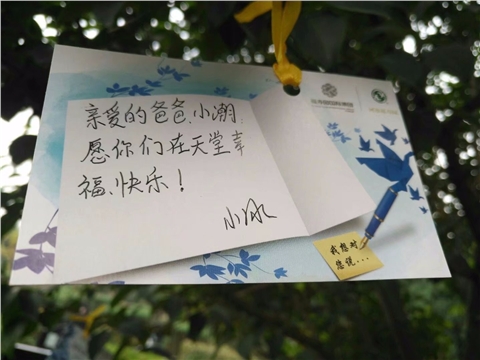 亲爱的爸爸、小潮
愿你们在天堂幸
福、快乐！
小冰
我想对
您说...